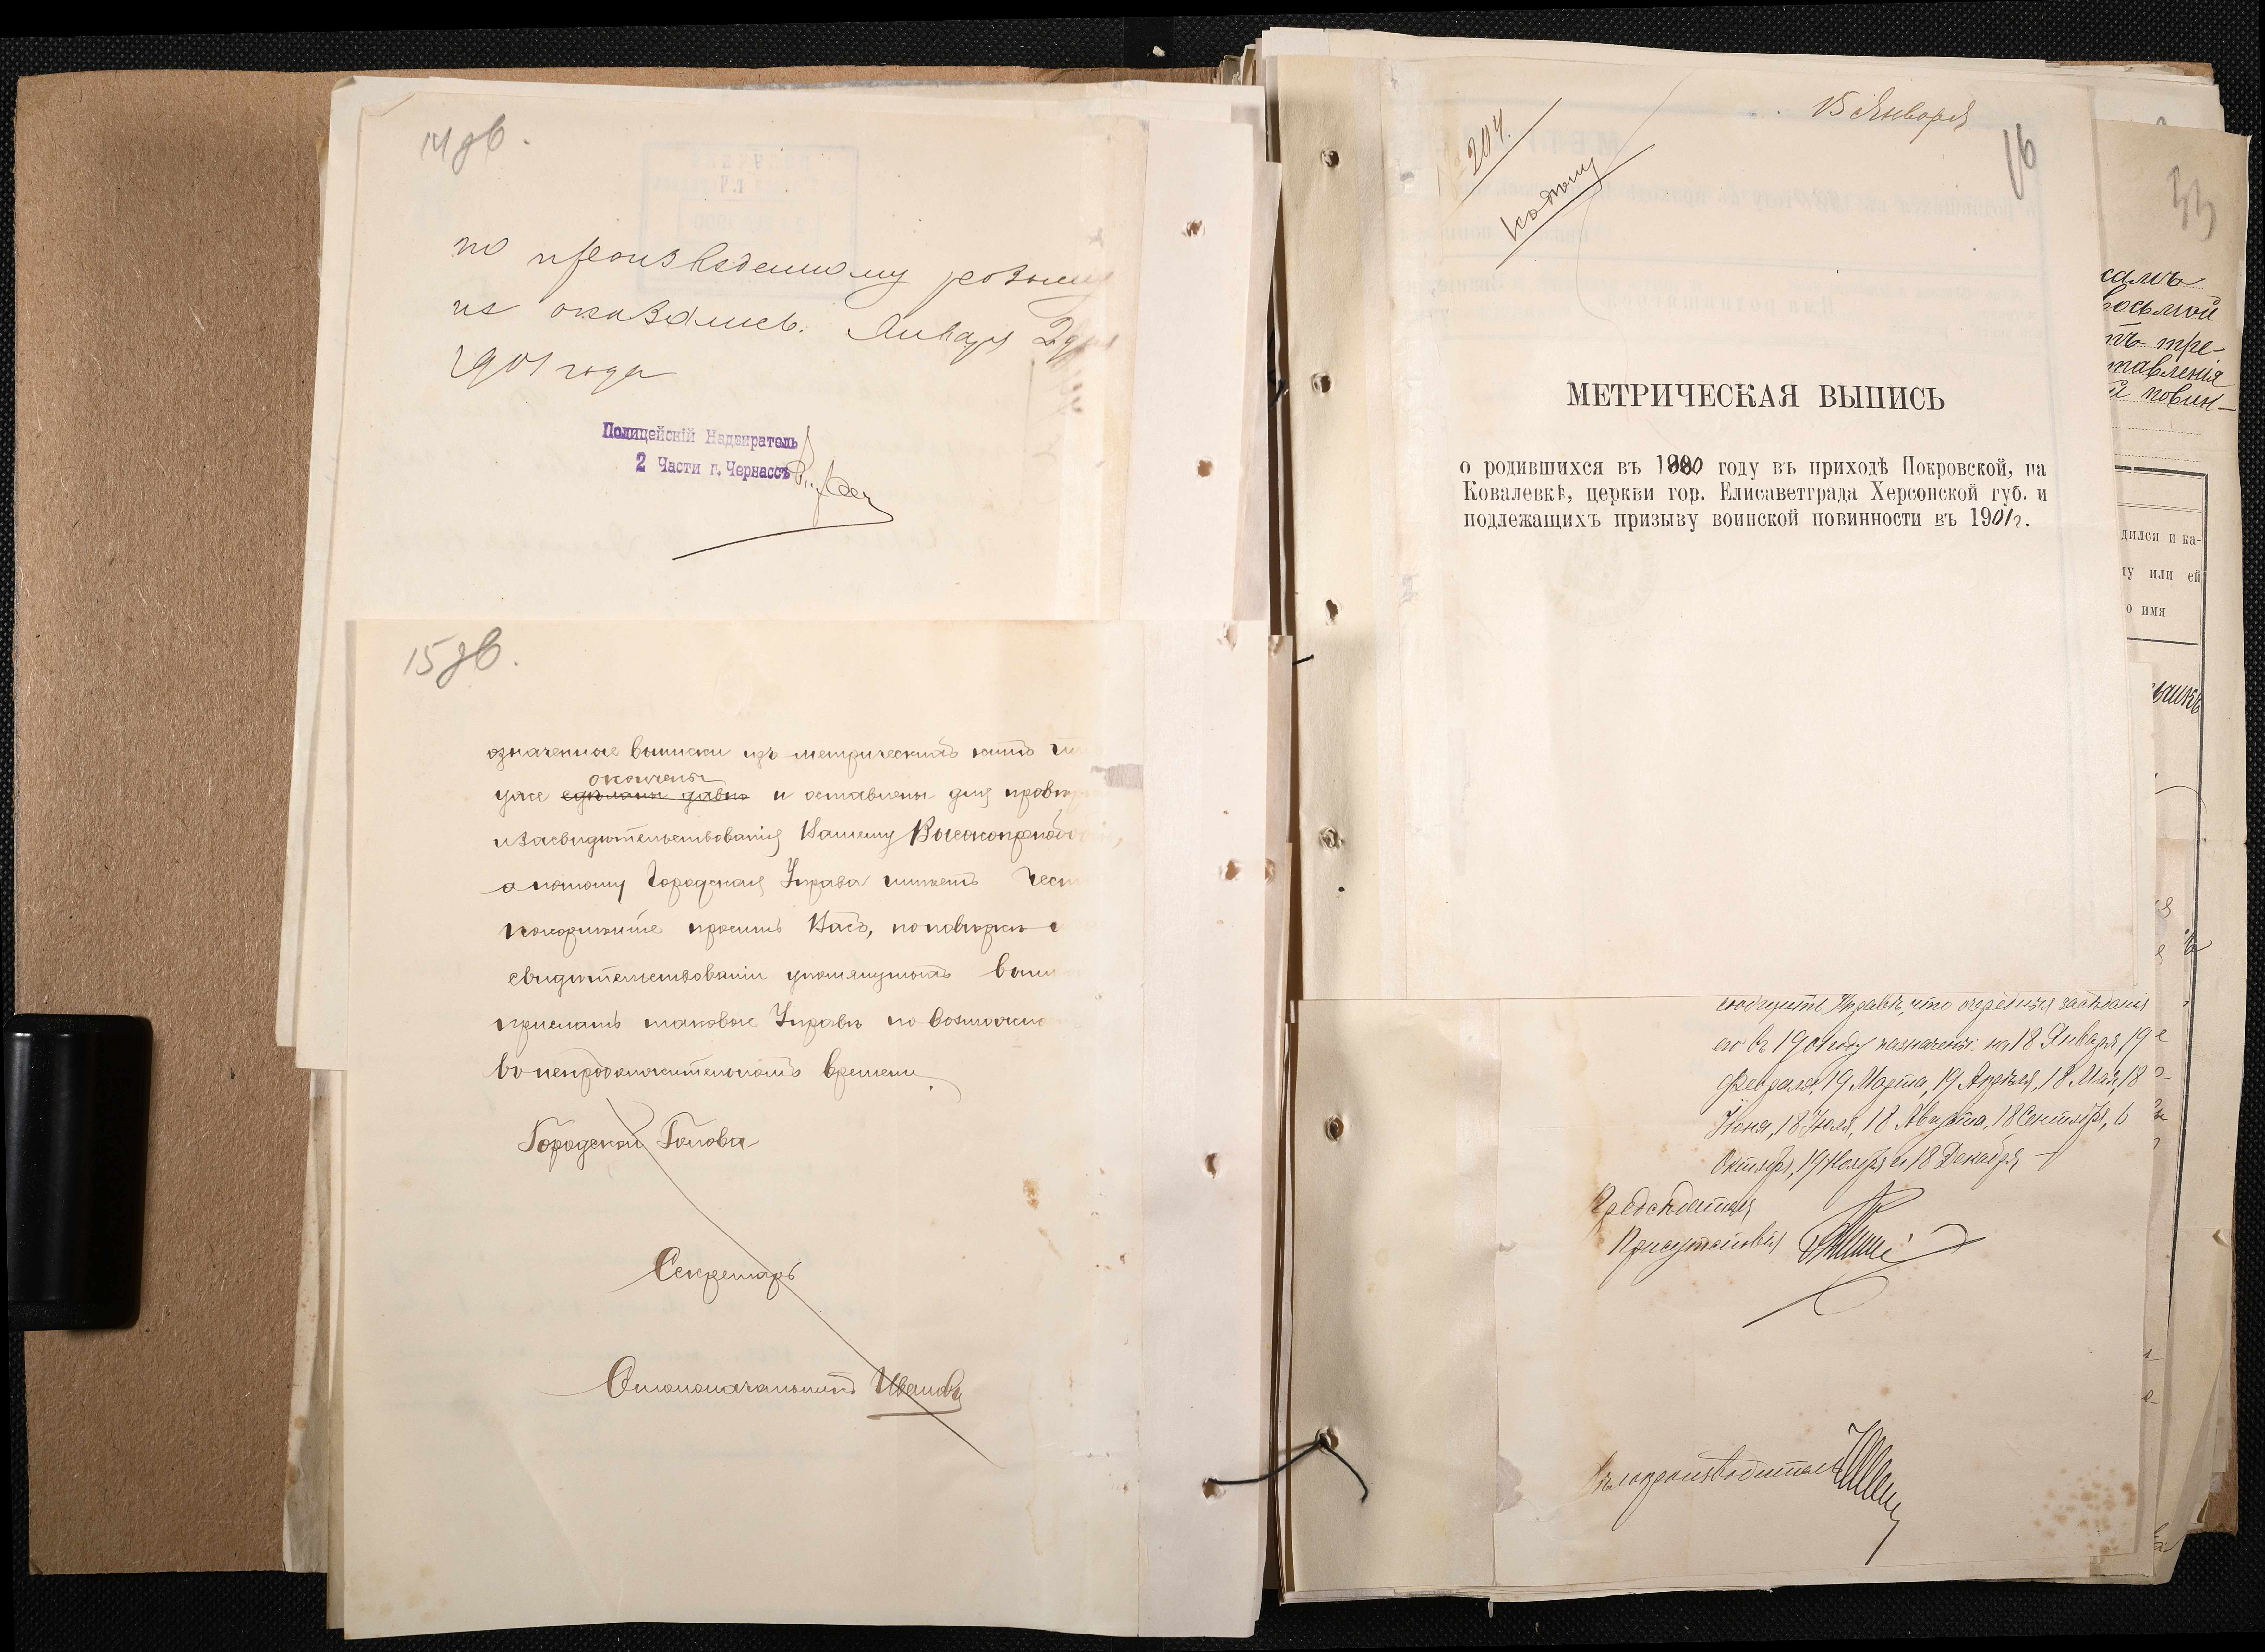 14 об.
по произведенному розыску
не оказались. Января 2 дня
1901 года
Полицейскій Надзиратель
2 Части г. Черкассъ
15 об.
означенные выписки изъ метрическихъ книгъ
уже сдѣланы давно и оставлены для провѣр
окончены
и засвидѣтельствованія Вашему Высокопреподо
а потому Городская Управа имѣетъ чест
покорнѣйше просить Васъ, по повѣркѣ и
свидѣтельствованіи упомянутыхъ выпи
прислать таковые Управѣ по возможно
въ непродолжительномъ времени.
Городской Голова
Секретарь
Столоначальникъ Ивановъ
15 Января
16
№ 204.
МЕТРИЧЕСКАЯ ВЫПИСЬ
о родившихся въ 1880 году въ приходѣ Покровской, на
Ковалевкѣ, церкви гор. Елисаветграда Херсонской губ. и
подлежащихъ призыву воинской повинности въ 1901г.
сообщить Управѣ, что очередныя засѣданія
его въ 1901 году назначены: на 18 Января, 19
Февраля, 19 Марта, 19 Апрѣля, 18 Мая, 18
Іюня, 18 Іюля, 18 Августа, 18 Сентября, 6
Октября, 19 Ноября и 18 Декабря.
Предсѣдатель
Присутствія
Дѣлопроизводитель
33
восьмой
тъ тре-
тавленія
й повин-
дился и ка-
му или ей
о имя